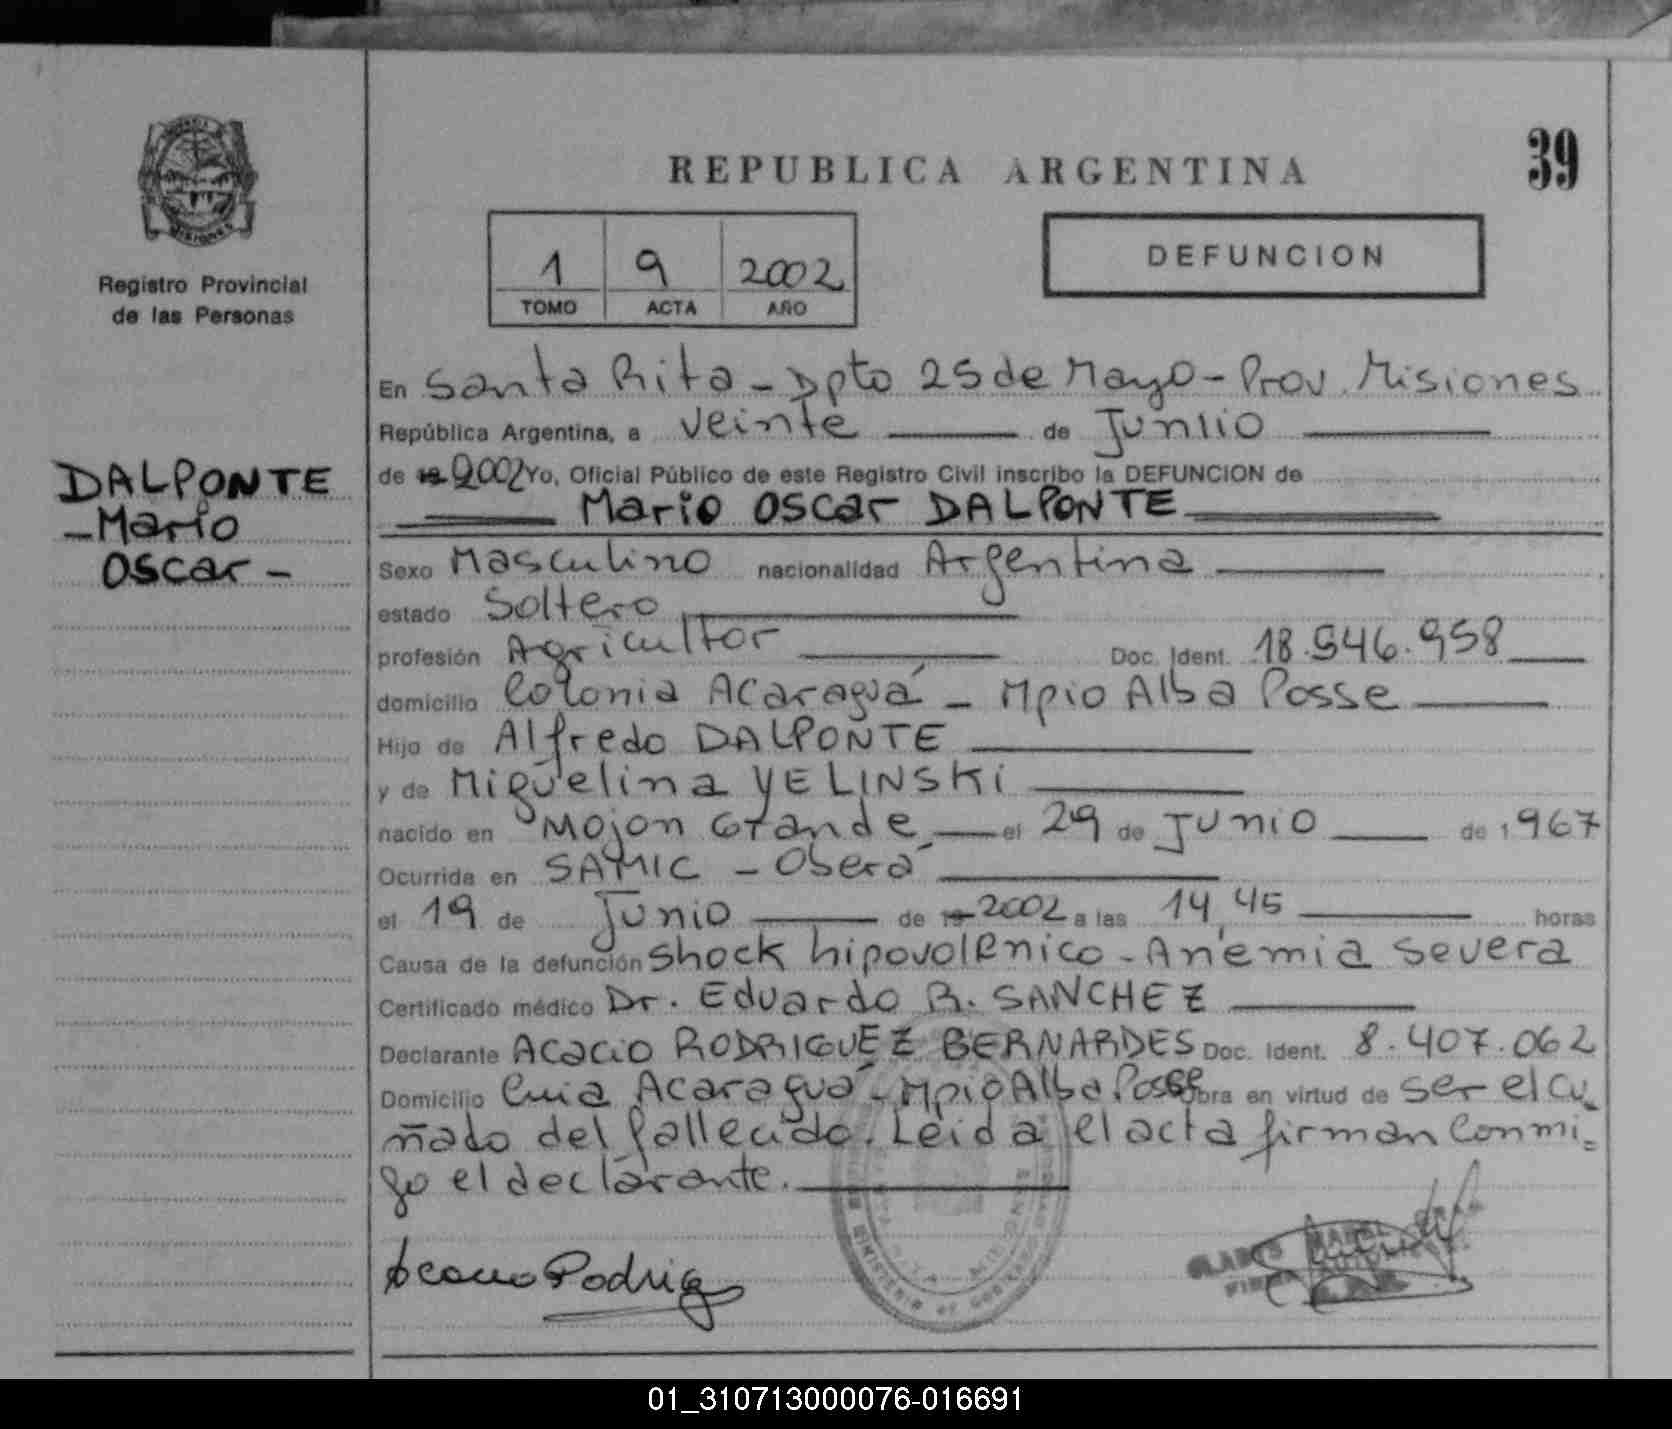 39
REPUBLICA ARGENTINA
DEFUNCION
1 9 2002
TOMO ACTA AÑO
MISIONES
Registro Provincial
de las Personas
DALPONTE
-Mario
Oscar-
En Santa Rita - Dpto 25 de Mayo - Prov. Misiones
República Argentina, a veinte de Junio
de 2002 Yo, Oficial Público de este Registro Civil inscribo la DEFUNCION de
Mario Oscar DALPONTE
Sexo Masculino nacionalidad Argentina
estado Soltero
profesión Agricultor Doc. Ident. 18.546.958
domicilio Colonia Acaraguá - Mpio Alba Posse
Hijo de Alfredo DALPONTE
y de Miguelina YELINSKi
nacido en Mojon Grande el 29 de Junio de 1967
Ocurrida en SAMIC - Oberá
el 19 de Junio de 19 2002 a las 14,45 horas
Causa de la defunción shock hipovolEnico - Anemia severa
Certificado médico Dr. Eduardo R. SANCHEZ
Declarante Acacio RODRIGUEZ BERNARDES Doc. Ident. 8.407.062
Domicilio Cnia Acaraguá - Mpio Alba Posse obra en virtud de ser el cu-
ñado del fallecido. Leida el acta firman conmi-
go el declarante.
MINISTERIO DE GOBIERNO
GLADYS MABEL
01_310713000076-016691